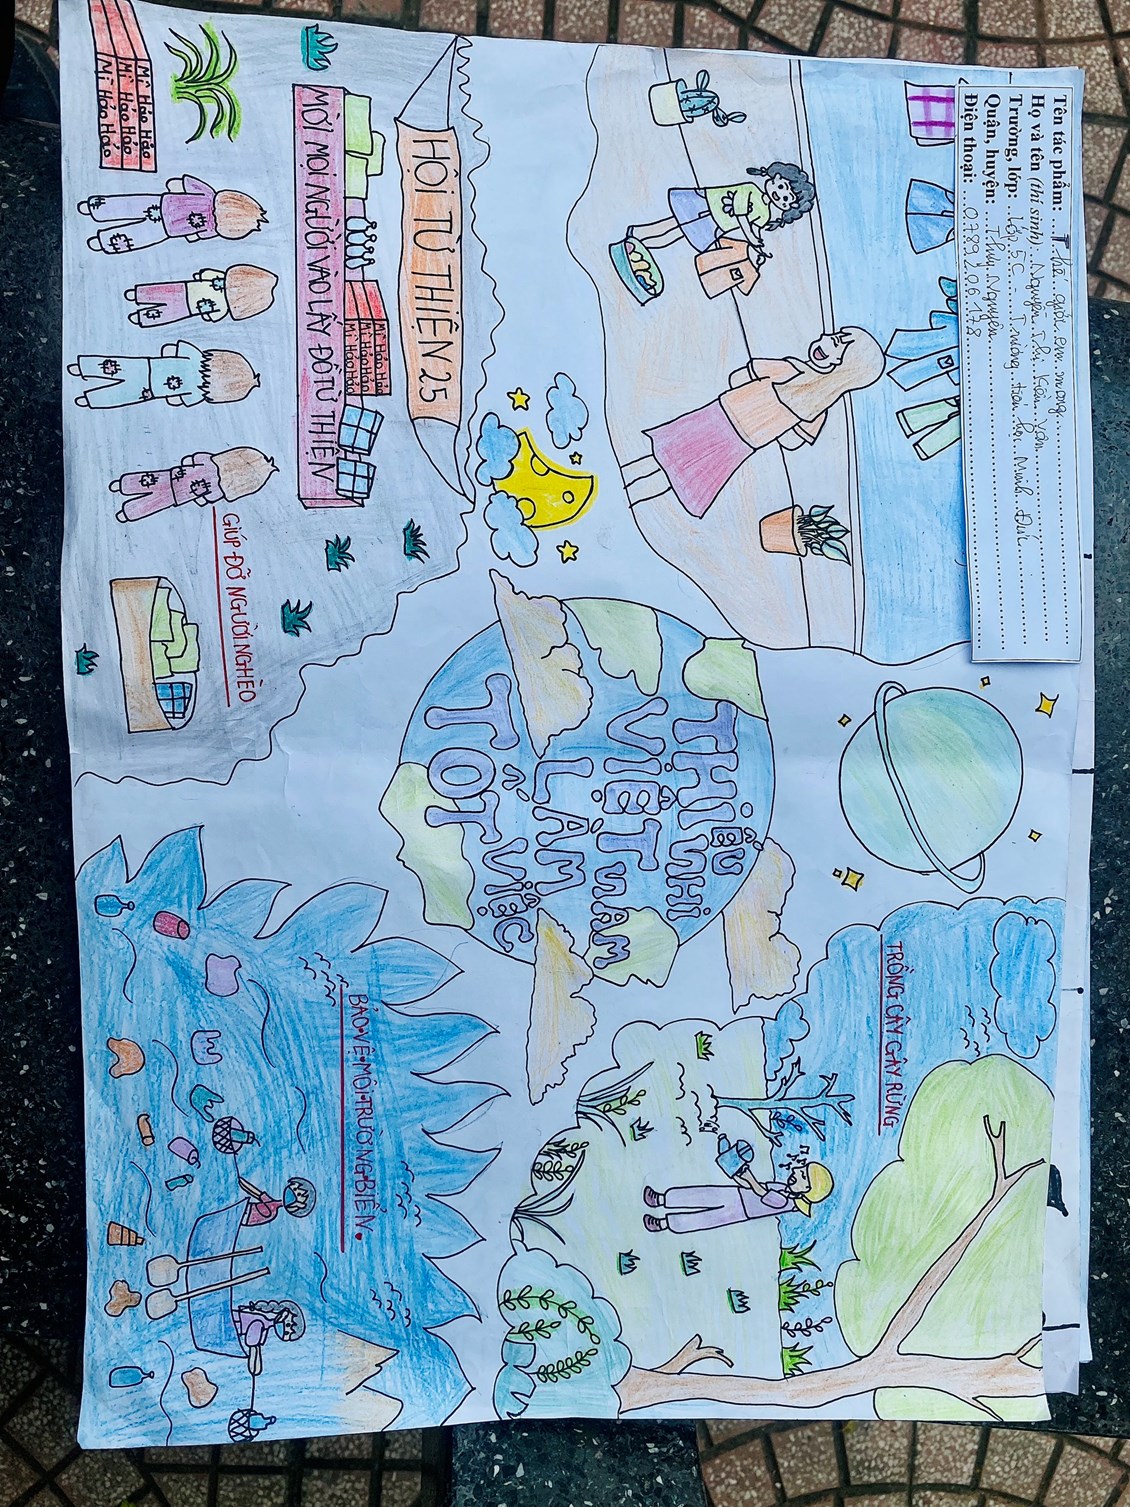 Tên tác phẩm: ...Thế giới em mong
Họ và tên (thí sinh)...Nguyễn Thị Kiều Vân
Trường, lớp: ...Lớp 5C...Trường tiểu học Minh Đức
Quận, huyện: ...Thủy Nguyên
Điện thoại: ...0789206178
HỘI TỪ THIỆN 25
MỜI MỌI NGƯỜI VÀO LẤY ĐỒ TỪ THIỆN
Mì Hảo Hảo
Mì Hảo Hảo
Mì Hảo Hảo
Mì Hảo Hảo
Mì Hảo Hảo
Mì Hảo Hảo
GIÚP ĐỠ NGƯỜI NGHÈO
THIẾU NHI
VIỆT NAM
LÀM
VIỆC
TỐT
TRỒNG CÂY GÂY RỪNG
BẢO VỆ MÔI TRƯỜNG BIỂN